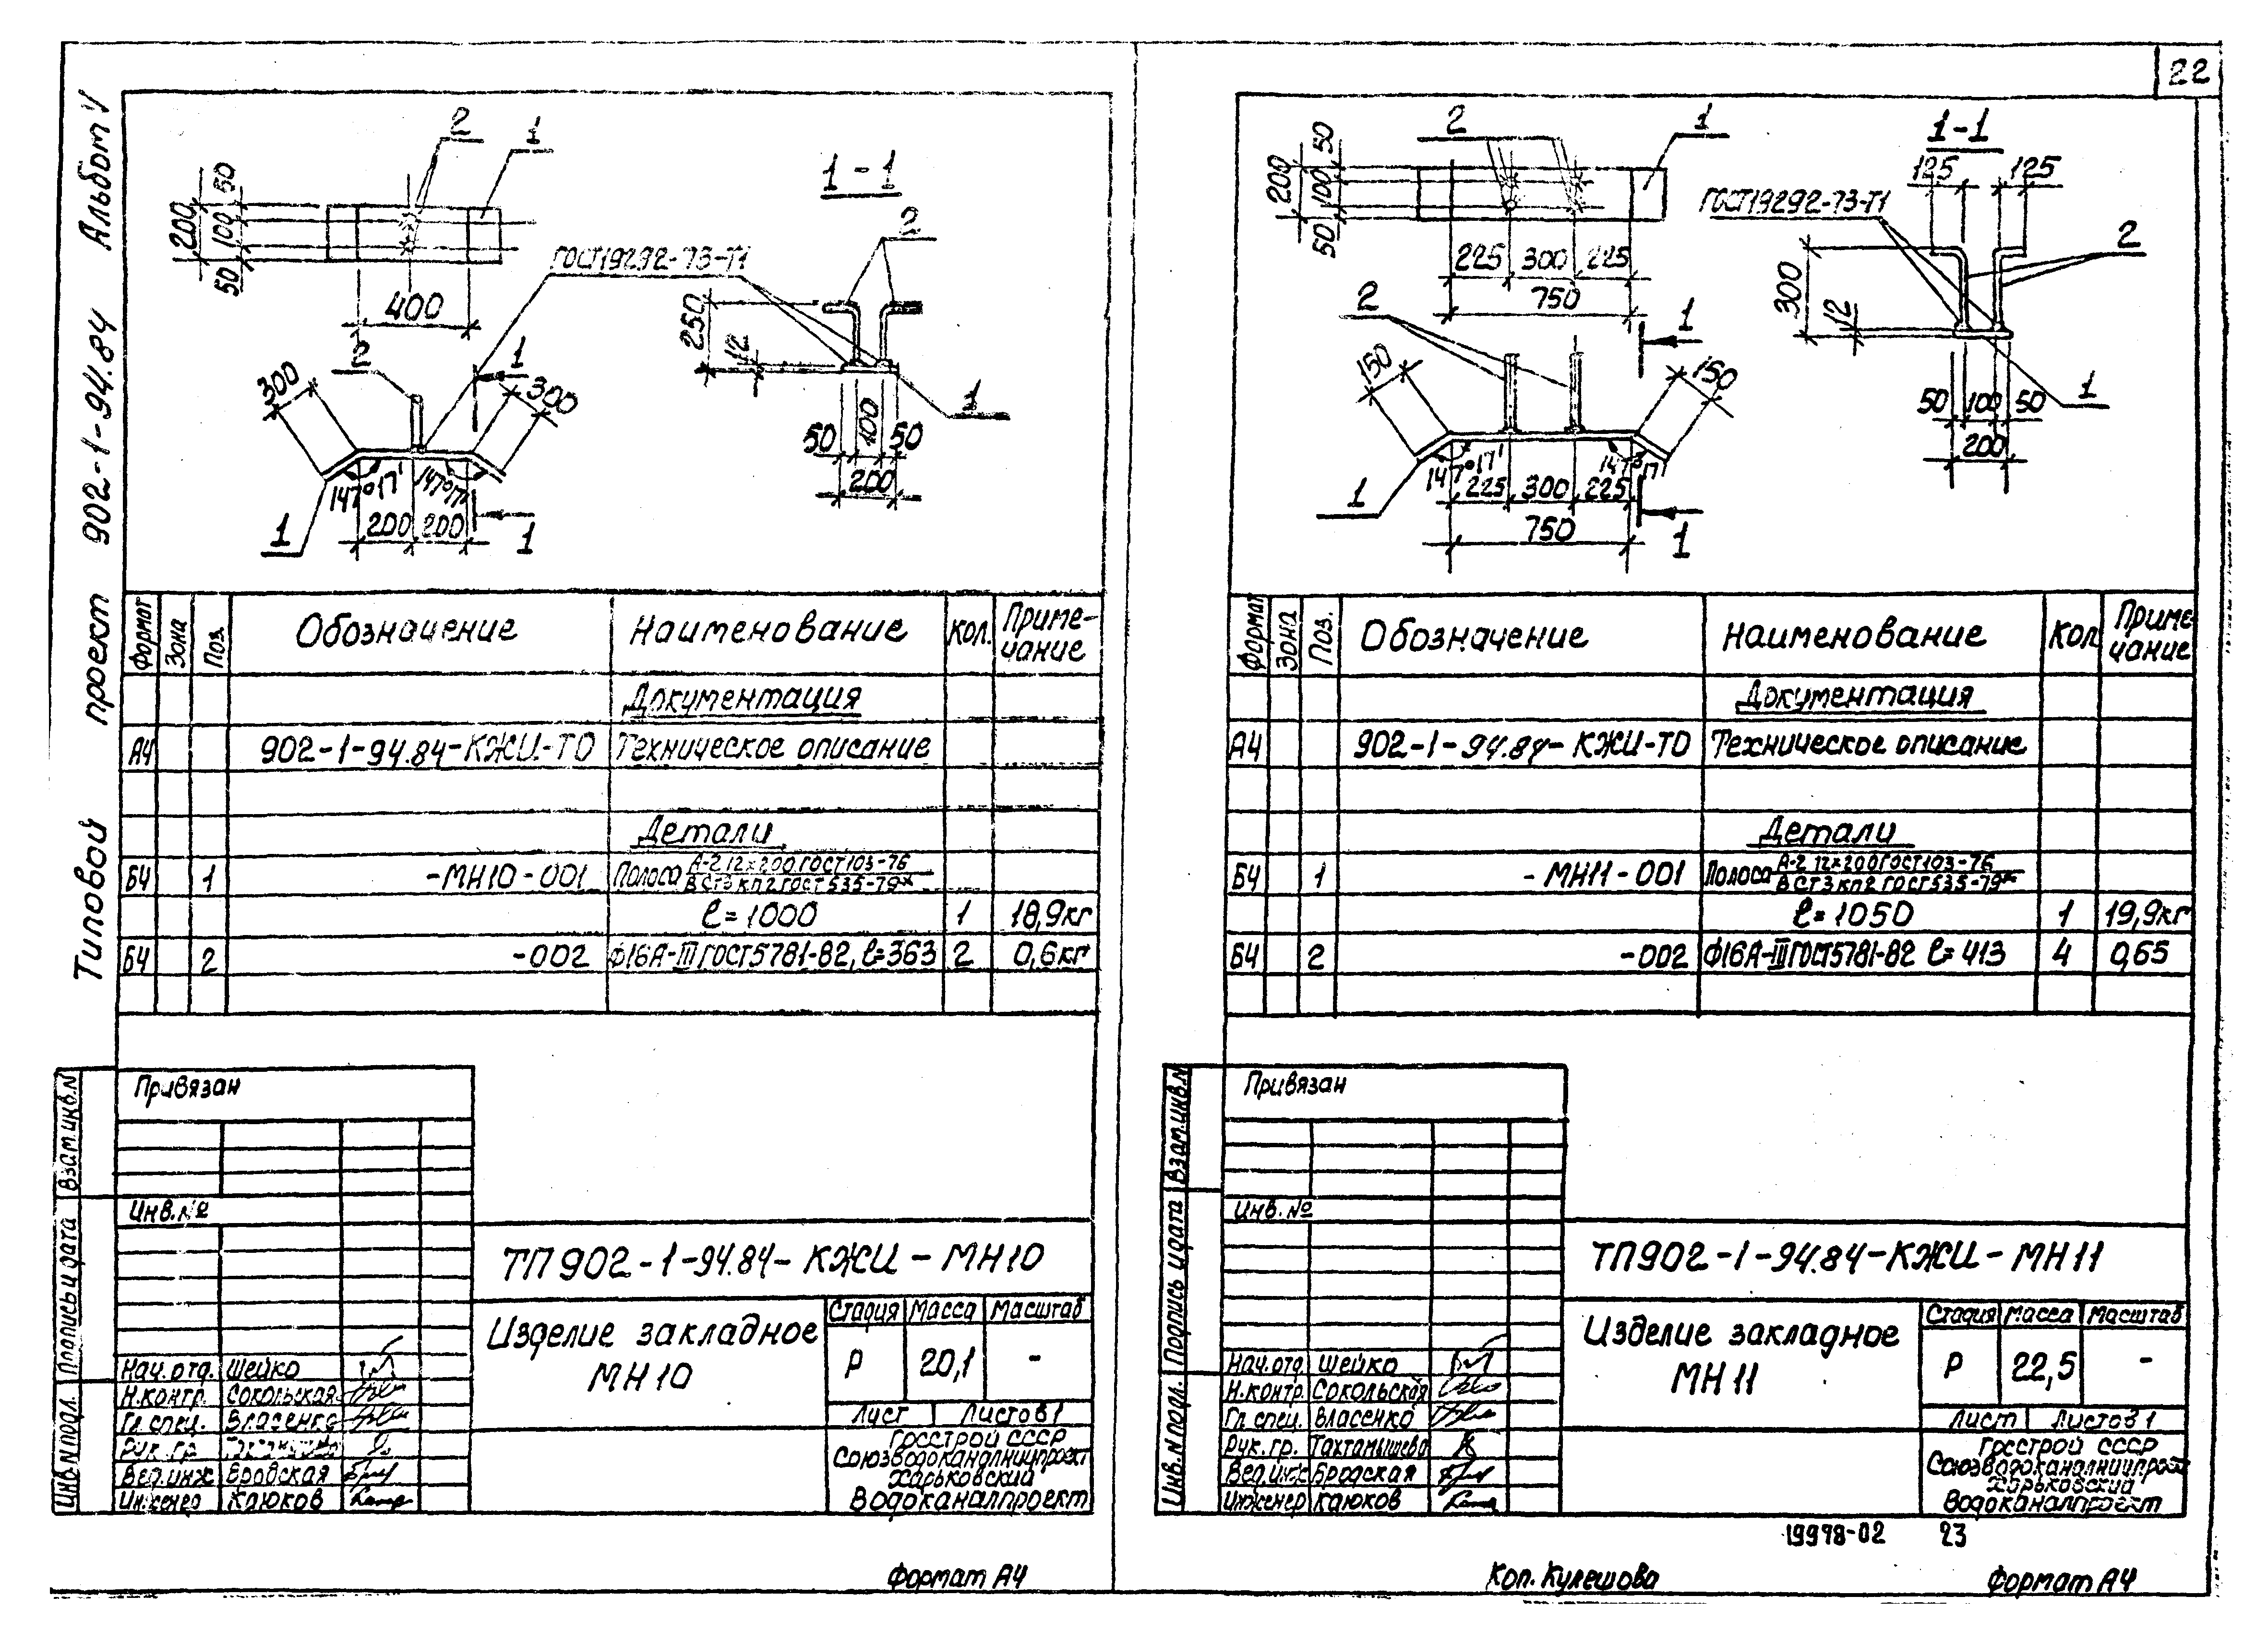 22
Типовой проект 902-1-94.84 Альбом V
2
1
50
200
100
50
400
1-1
2
ГОСТ19292-73-Т1
250
12
1
50
100
50
200
300
2
1
300
147°17'
147°17'
1
200
200
1
Формат
Зона
Поз.
Обозначение
Наименование
Кол.
Приме-
чание
Документация
А4 902-1-94.84-КЖИ-ТО Техническое описание
Детали
Б4 1 -МН10-001 Полоса А-2 12×200 ГОСТ103-76
ВСт3кп2 ГОСТ535-79*
ℓ=1000 1 18,9кг
Б4 2 -002 Ф16А-III ГОСТ5781-82, ℓ=363 2 0,6кг
Привязан
Инв.№
Взам.инв.N
Подпись и дата
Инв.N подл.
ТП902-1-94.84-КЖИ-МН10
Изделие закладное
МН10
Стадия Масса Масштаб
Р 20,1 -
Лист Листов 1
Госстрой СССР
Союзводоканалниипроект
Харьковский
Водоканалпроект
Нач.отд. Шейко
Н.контр. Сокольская
Гл.спец. Власенко
Рук.гр.
Вед.инж Бродская
Инженер Каюков
Формат А4
2
1
50
200
100
50
225
300
225
750
1-1
125
125
ГОСТ19292-73-Т1
2
300
12
1
50
100
50
200
2
1
150
150
147°17'
147°17'
1
225
300
225
750
1
Формат
Зона
Поз.
Обозначение
Наименование
Кол
Приме-
чание
Документация
А4 902-1-94.84-КЖИ-ТО Техническое описание
Детали
Б4 1 -МН11-001 Полоса А-2 12×200 ГОСТ103-76
ВСт3кп2 ГОСТ535-79*
ℓ=1050 1 19,9кг
Б4 2 -002 Ф16А-III ГОСТ5781-82 ℓ=413 4 0,65
Привязан
Инв.№
Взам.инв.N
Подпись и дата
Инв.N подл.
ТП902-1-94.84-КЖИ-МН11
Изделие закладное
МН11
Стадия Масса Масштаб
Р 22,5 -
Лист Листов 1
Госстрой СССР
Союзводоканалниипроект
Харьковский
Водоканалпроект
Нач.отд Шейко
Н.контр. Сокольская
Гл.спец. Власенко
Рук.гр. Тахтамышева
Вед.инж Бродская
Инженер Каюков
19978-02 23
Коп. Кулешова
Формат А4